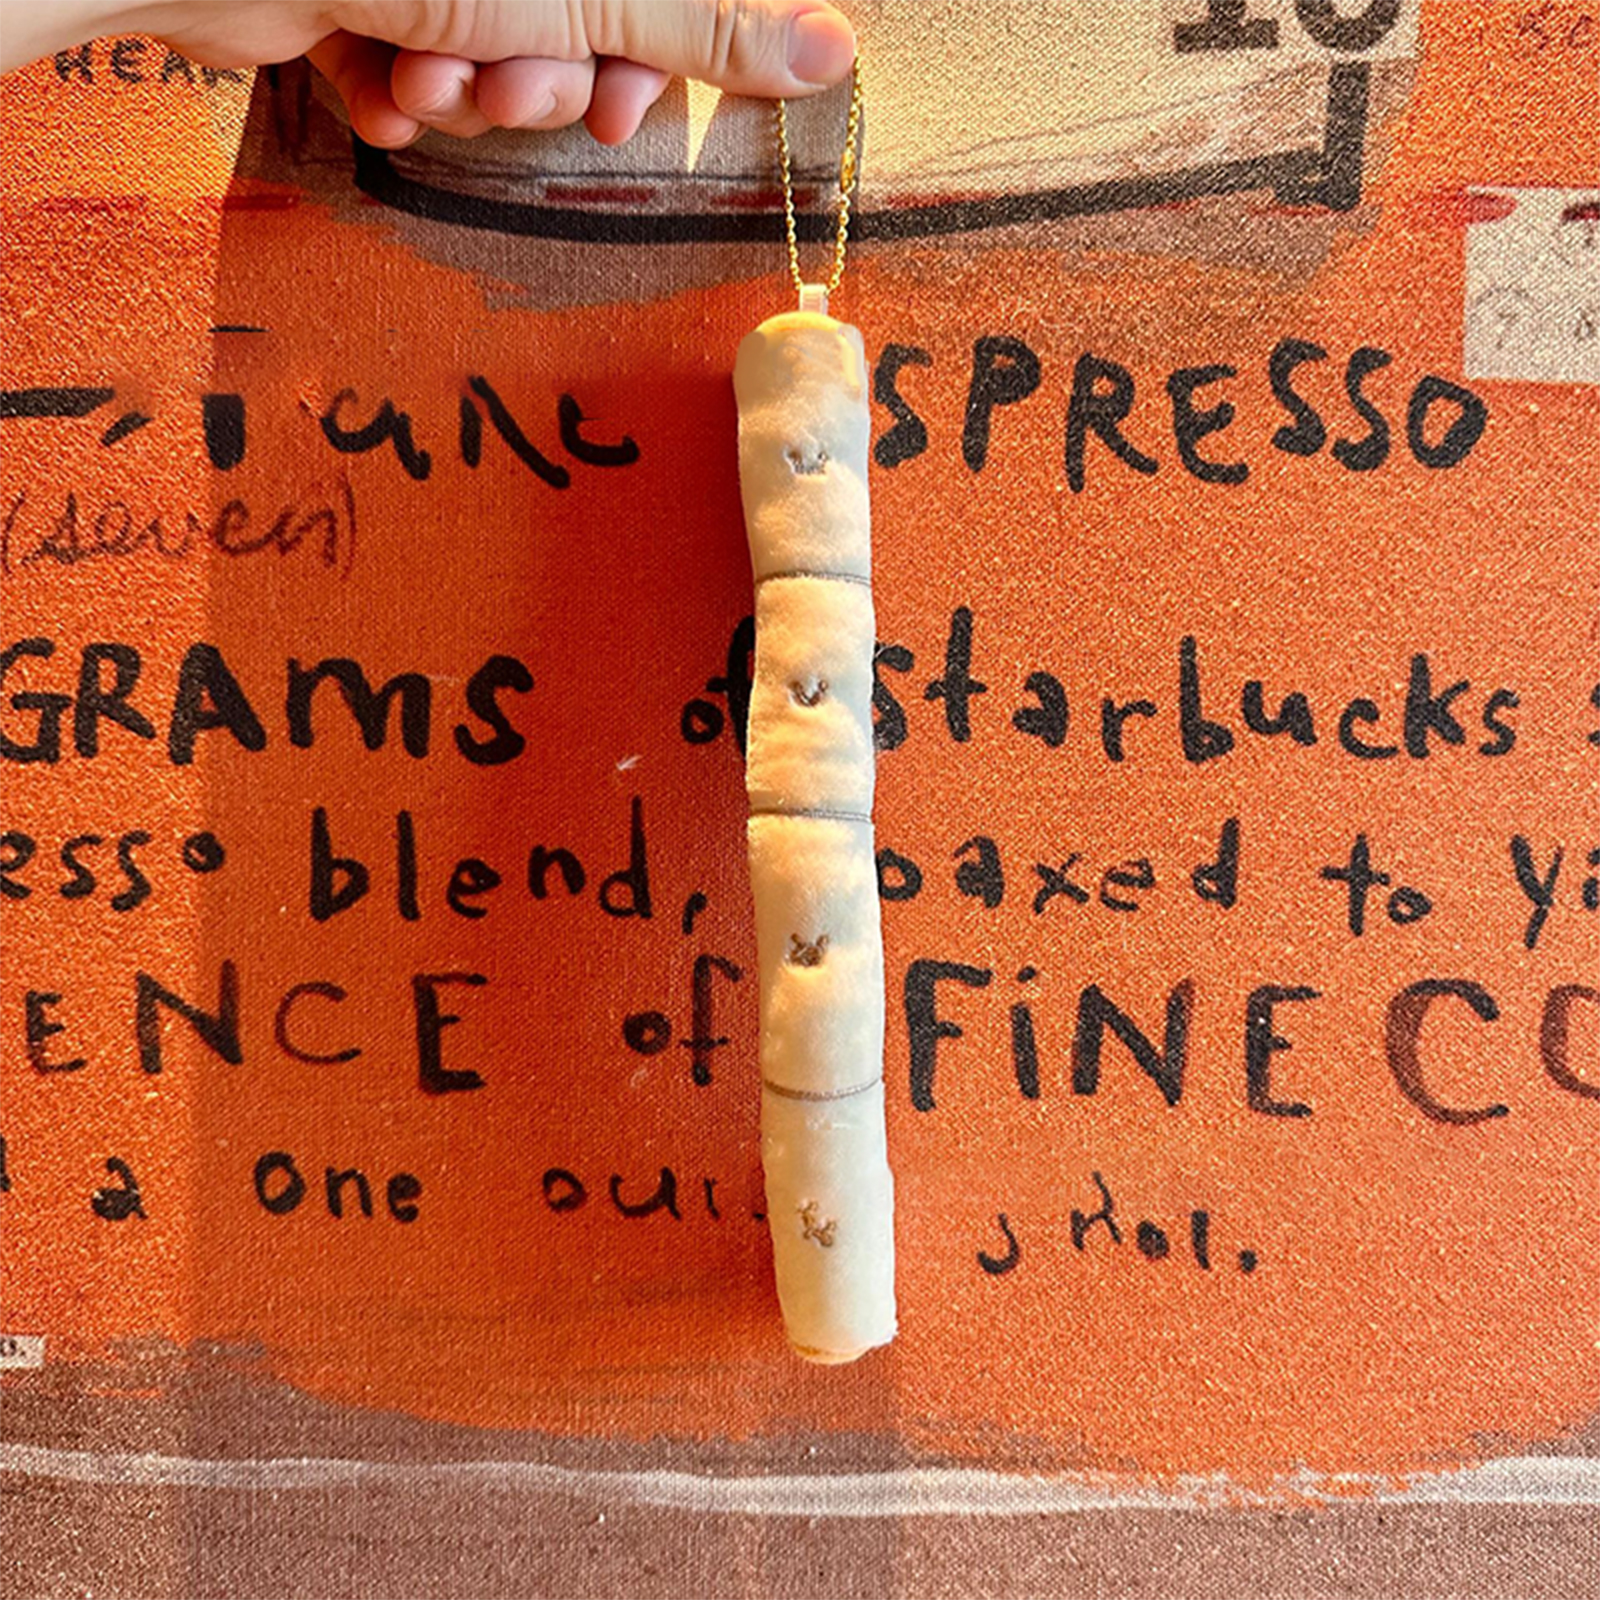 10
HEAR
SPRESSO
(seven)
GRAMS of starbucks
esso blend, oaxed to ya
ENCE of FiNE CO
a one